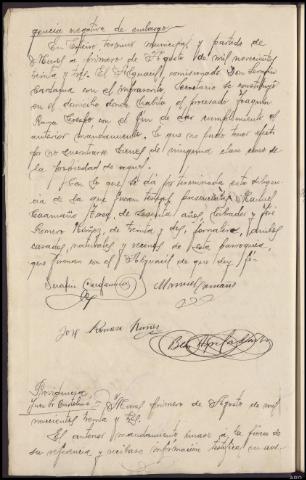 gencia negativa de embargo
En termino municipal y partido de
a primero de Agosto de mil novecientos
treinta y tres. El Alguacil comisionado Don Serafin
con el infrascrito Secretario se constituyó
en el domicilio donde habita el procesado Joaquin
Raza Crespo con el fin de dar cumplimiento al
anterior mandamiento, lo que no pudo tener efecto
por no encontrarse bienes de ninguna clase
de la propiedad de aquel.
Con lo que se dá por terminada esta diligen
cia de la que fueron testigos presenciales Manuel
Caamaño de sesenta años, labrador y José
Romero Nuñez, de treinta y dos, jornalero, ambos
casados, naturales y vecinos de esta parroquia,
que firman con el Alguacil de que doy fé=
Serafin Manuel Caamaño
Jose Romero Nuñez
Providencia
Juez Sr. primero de Agosto de mil
novecientos treinta y tres.
El anterior mandamiento únase a la pieza de
su referencia, y recibase información testifical